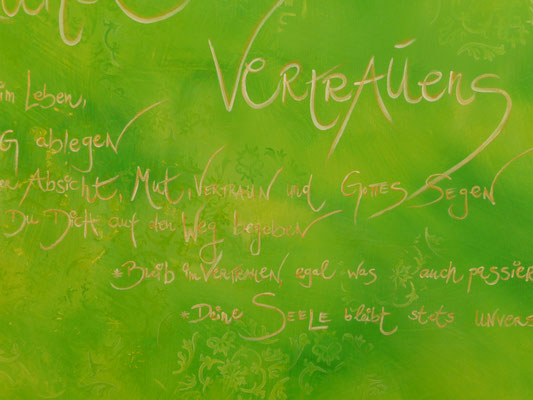 Vertrauens
im Leben,
G ablegen
Absicht, Mut, Vertraun und Gottes Segen
Du Dich auf den Weg begeben
*Bleib im Vertrauen, egal was auch passier
*Deine Seele bleibt stets unvers